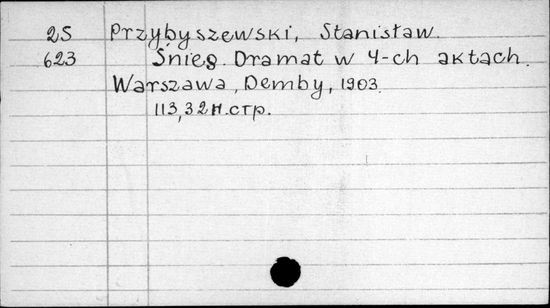 25 Przybyszewski, Stanisław.
623 Śnieg. Dramat w 4-ch aktach.
Warszawa, Demby, 1903.
113, 32 н. стр.